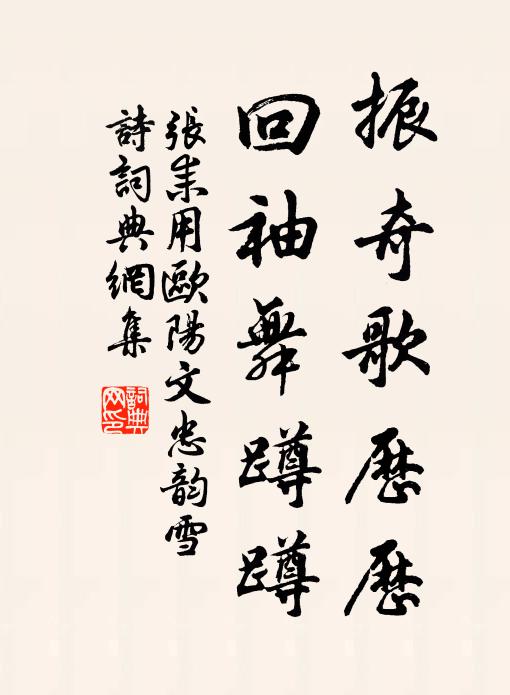 振奇歌歷歷
回袖舞蹲蹲
張耒用歐陽文忠韵雪
詩詞典網集
詞典网印